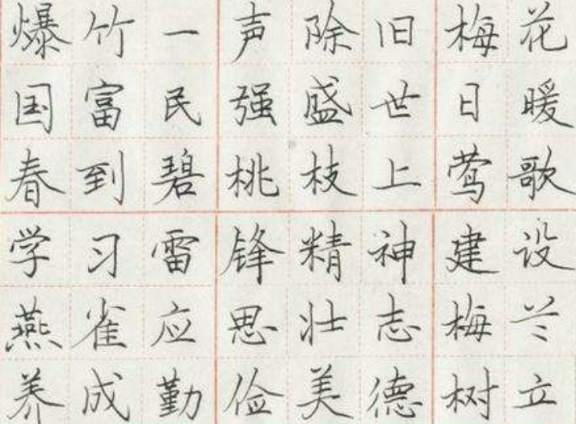 爆竹一声除旧梅花
国富民强盛世日暖
春到碧桃枝上莺歌
学习雷锋精神建设
燕雀应思壮志梅兰
养成勤俭美德树立